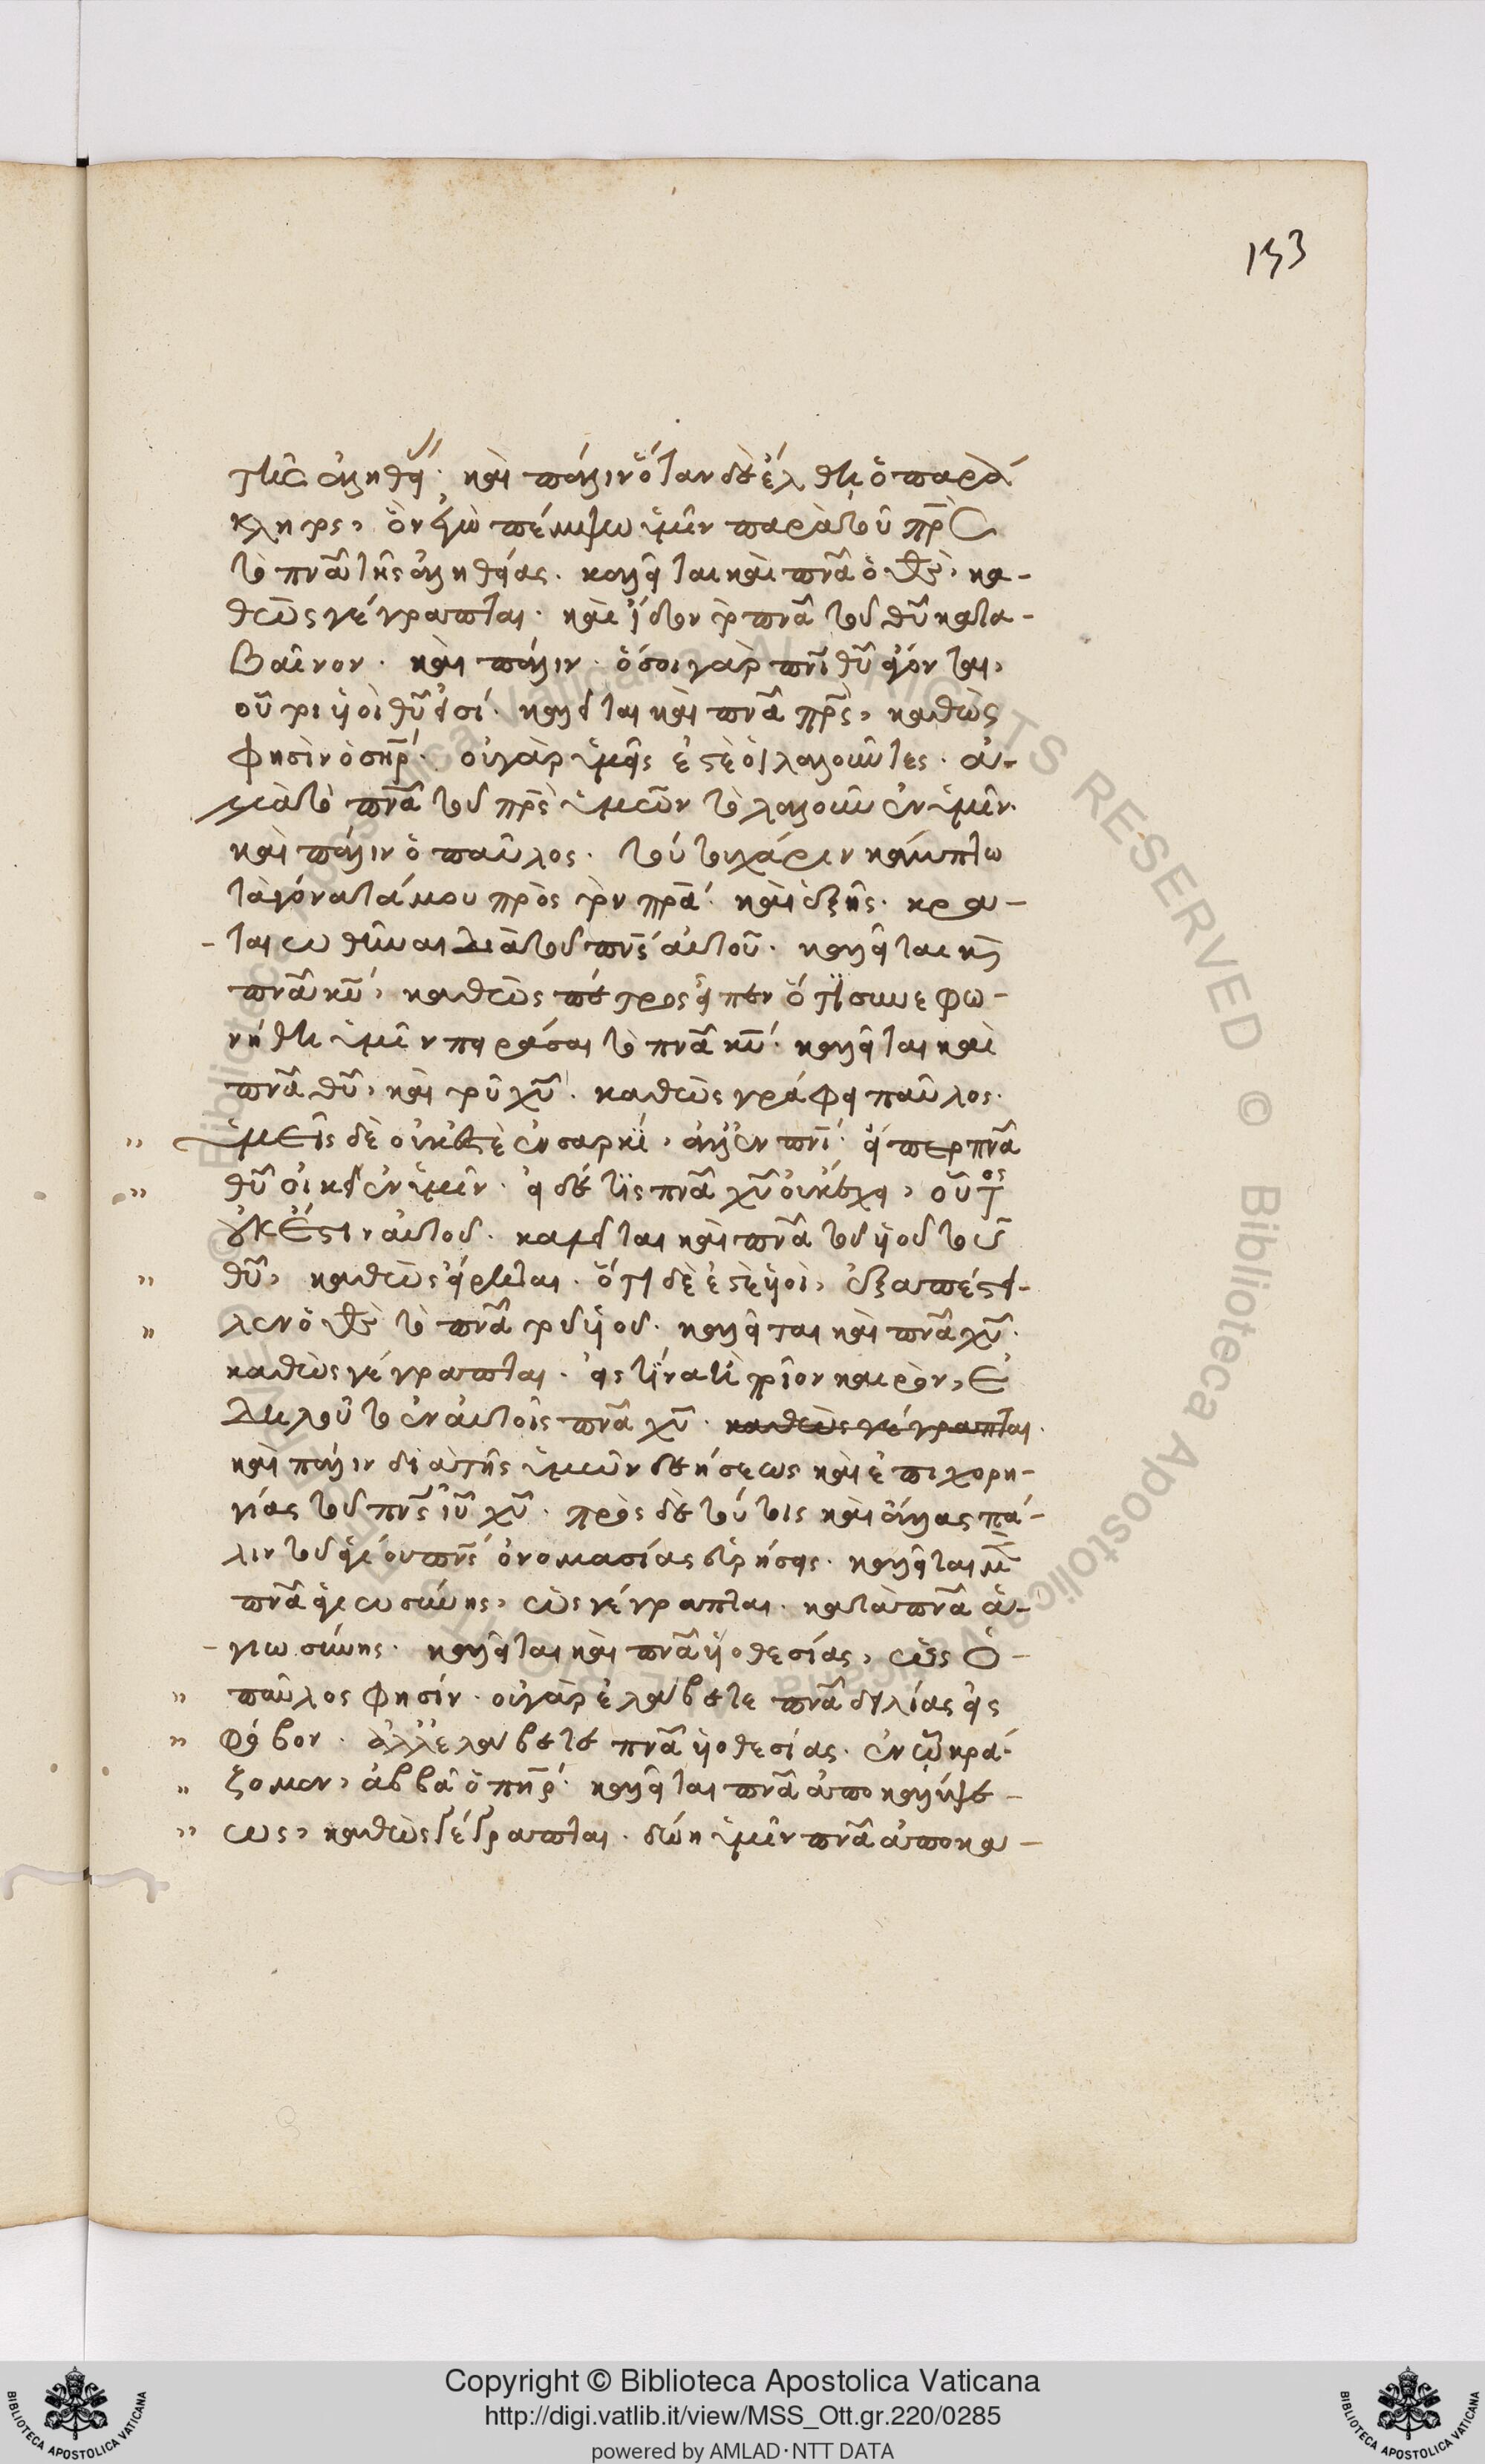 153
τις ἀληθεί· καὶ πάλιν ὅταν δὲ ἔλθη ὁ παρά
κλητος, ὃν ἐγὼ πέμψω ὑμῖν παρὰ τοῦ πρς
τὸ πνα τῆς ἀληθείας. καλεῖται καὶ πνα ὁ θς, κα-
θὼς γέγραπται. καὶ ἴδον τὸ πνα τοῦ θυ κατα-
βαῖνον. καὶ πάλιν. ὅσοι γὰρ πνι θυ ἄγονται,
οὗτοι υἱοὶ θυ εἰσί. καλεῖται καὶ πνα πρς, καθὼς
φησὶν ὁ σηρ. οὐ γὰρ ὑμεῖς ἐστὲ οἱ λαλοῦντες. ἀλ-
λὰ τὸ πνα τοῦ πρς ὑμῶν τὸ λαλοῦν ἐν ὑμῖν.
καὶ πάλιν ὁ παῦλος. τούτου χάριν κάμπτω
τὰ γόνατά μου πρὸς τὸν πρα. καὶ ἑξῆς. κρα-
ταιωθῆναι διὰ τοῦ πνς αὐτοῦ. καλεῖται κὶ
πνα κυ, καθὼς πέτρος εἶπεν ὅτι συνεφω-
νήθη ὑμῖν πειράσαι τὸ πνα κυ. καλεῖται καὶ
πνα θυ, καὶ τοῦ χυ. καθὼς γράφει παῦλος.
" ὑμεῖς δὲ οὐκ ἐστὲ ἐν σαρκὶ, ἀλλ' ἐν πνι. εἴπερ πνα
" θυ οἰκεῖ ἐν ὑμῖν. εἰ δέ τις πνα χυ οὐκ ἔχει, οὗτος
οὐκ ἔστιν αὐτοῦ. καλεῖται καὶ πνα τοῦ υἱοῦ τοῦ
" θυ, καθὼς εἴρηται. ὅτι δὲ ἐστὲ υἱοὶ, ἐξαπέστει-
" λεν ὁ θς τὸ πνα τοῦ υἱοῦ. καλεῖται καὶ πνα χυ.
καθὼς γέγραπται. εἰς τίνα ἢ ποῖον καιρὸν, ἐ
δηλοῦτο ἐν αὐτοῖς πνα χυ. καθὼς γέγραπται.
καὶ πάλιν διὰ τῆς ὑμῶν δεήσεως καὶ ἐπιχορη-
γίας τοῦ πνς ιυ χυ. πρὸς δὲ τούτοις καὶ ἄλλας πά-
λιν τοῦ ἁγίου πνς ὀνομασίας εὑρήσεις. καλεῖται μὲν
πνα ἁγιωσύνης, ὡς γέγραπται. κατὰ πνα ἁ-
γιωσύνης. καλεῖται καὶ πνα υἱοθεσίας, ὡς ὁ
" παῦλος φησίν. οὐ γὰρ ἐλάβετε πνα δειλίας εἰς
" φόβον. ἀλλ' ἐλάβετε πνα υἱοθεσίας. ἐν ᾧ κρά-
" ζομεν, ἀββᾶ ὁ πηρ. καλεῖται πνα ἀποκαλύψε-
" ως, καθὼς γέγραπται. δώη ὑμῖν πνα ἀποκα-
Copyright © Biblioteca Apostolica Vaticana
http://digi.vatlib.it/view/MSS_Ott.gr.220/0285
powered by AMLAD·NTT DATA